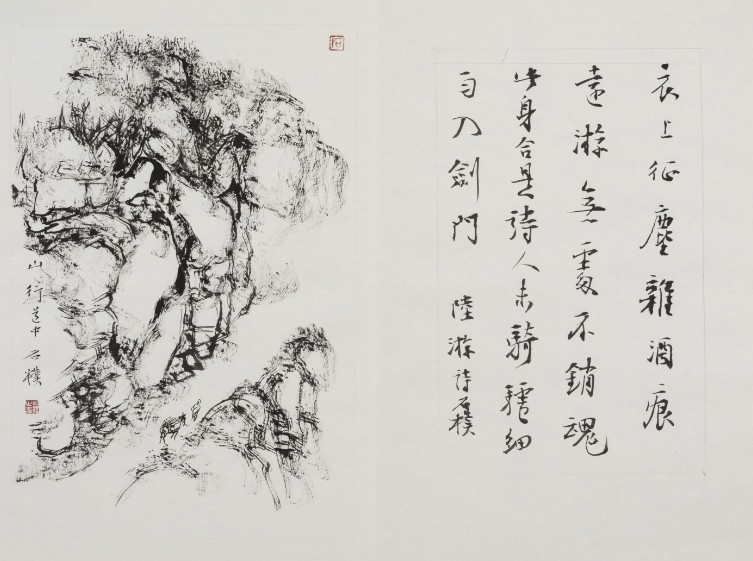 衣上征塵雜酒痕
遠游無處不銷魂
此身合是詩人未騎驢細
雨入劍門 陸游詩 石樸
山行道中 石樸